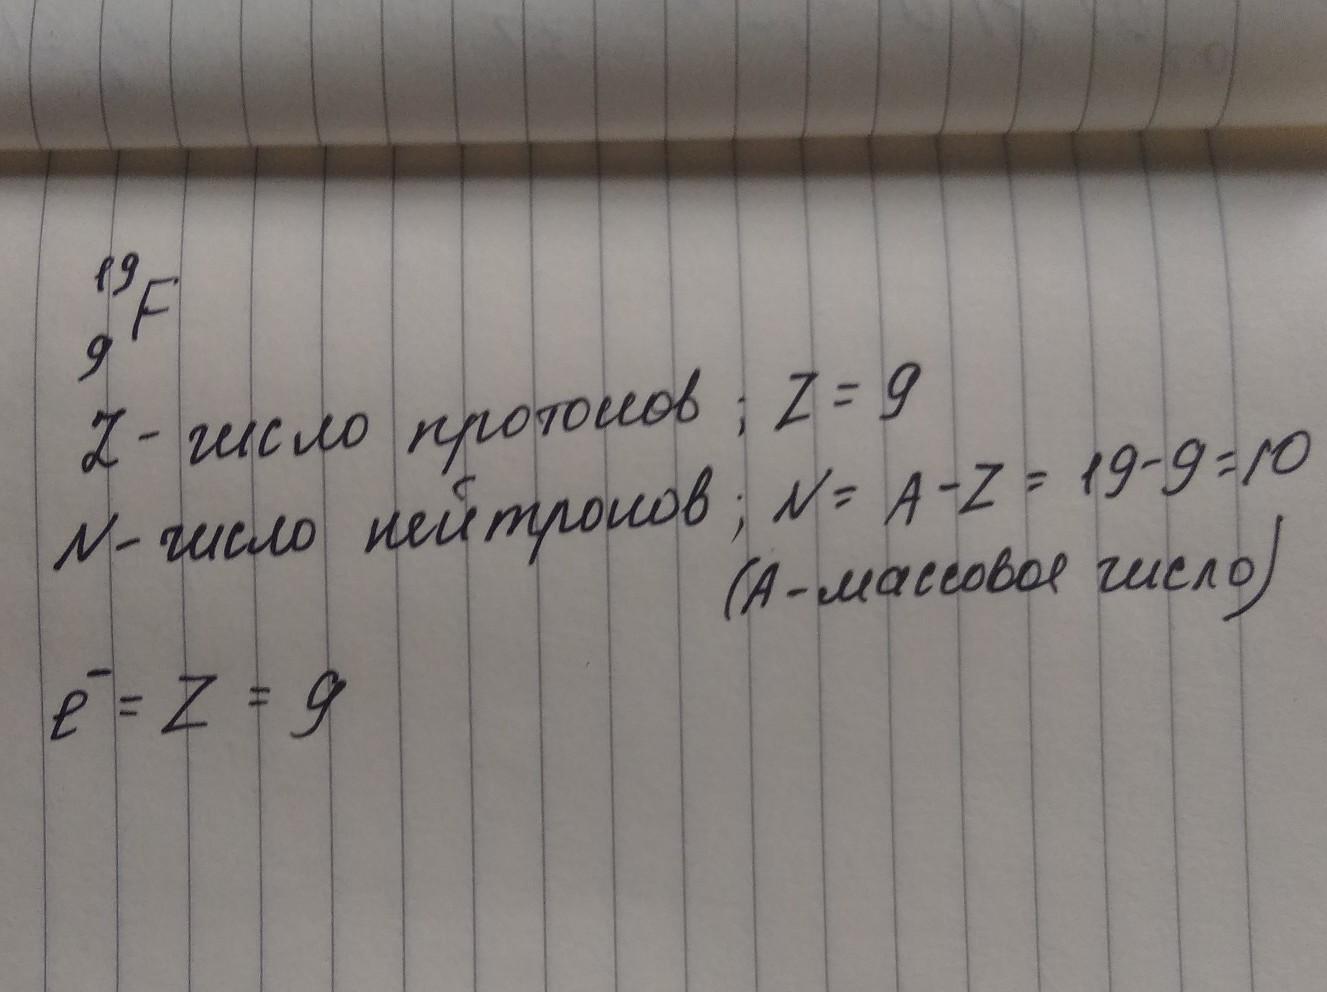 19
F
9
Z - число протонов ; Z = 9
N - число нейтронов ; N = A - Z = 19 - 9 = 10
(A - массовое число)
e⁻ = Z = 9